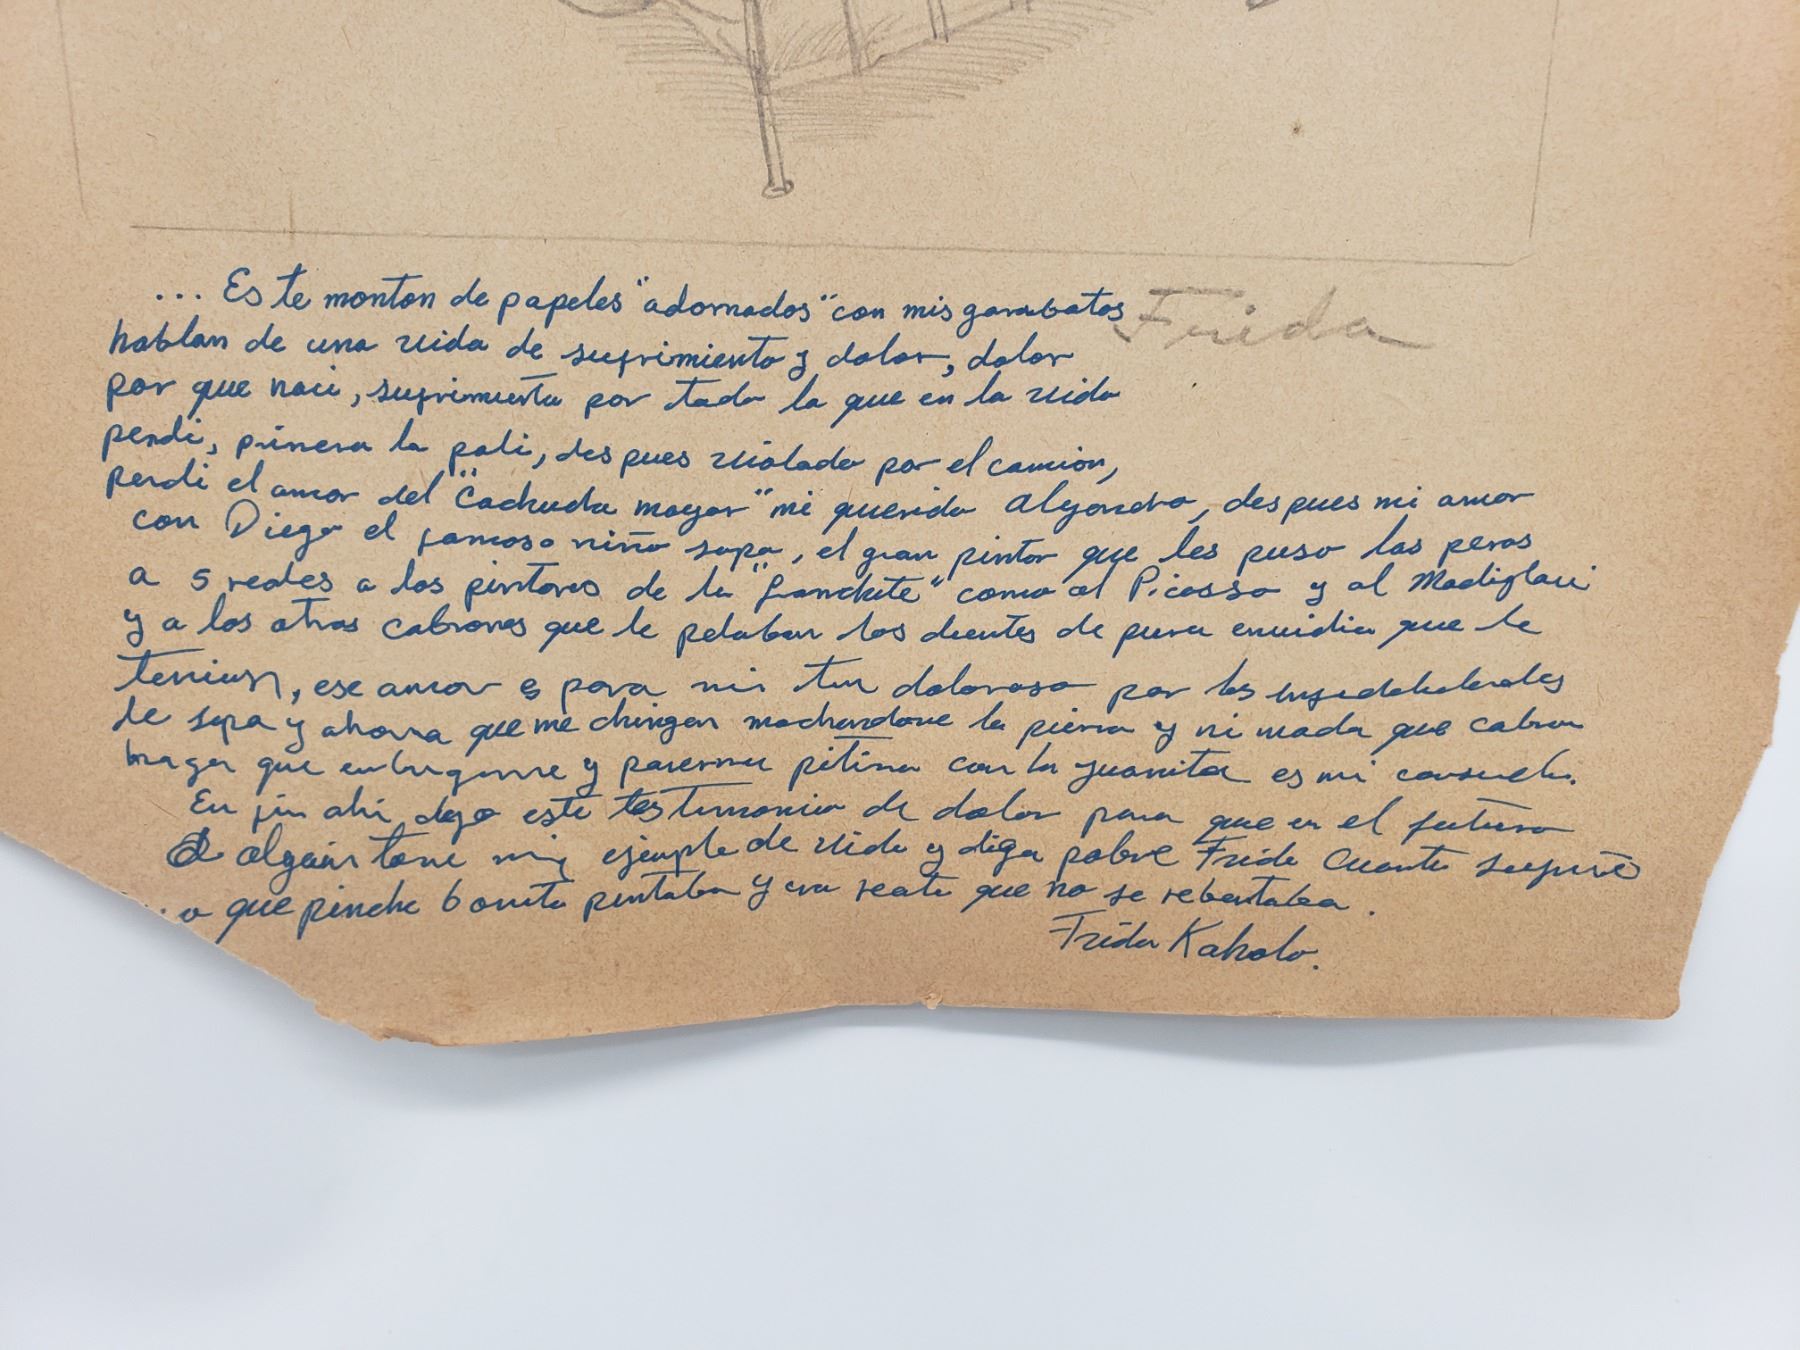 ... Este monton de papeles "adornados" con mis garabatos
Frida
hablan de una vida de sufrimiento y dolor, dolor
por que naci, sufrimiento por todo lo que en la vida
perdi, primero la poli, des pues violada por el camion,
perdi el amor del "Cachucha mayor" mi querido Alejandro, des pues mi amor
con Diego el famoso niño sapo, el gran pintor que les puso las peras
a 5 reales a los pintores de la "Franchute" como al Picasso y al Modigliani
y a los otros cabrones que le pelaban los dientes de pura envidia que le
tenian, ese amor es para mi tan doloroso por las
de sapo y ahora que me chingan mochandome la pierna y ni modo que cabron
que y con la Juanita es mi consuelo.
En fin ahi dejo este testimonio de dolor para que en el futuro
alguien tome mi ejemplo de vida y diga pobre Frida Cuanto sufrió
..o que pinche bonito pintaba y era reata que no se rebentaba.
Frida Kahlo.